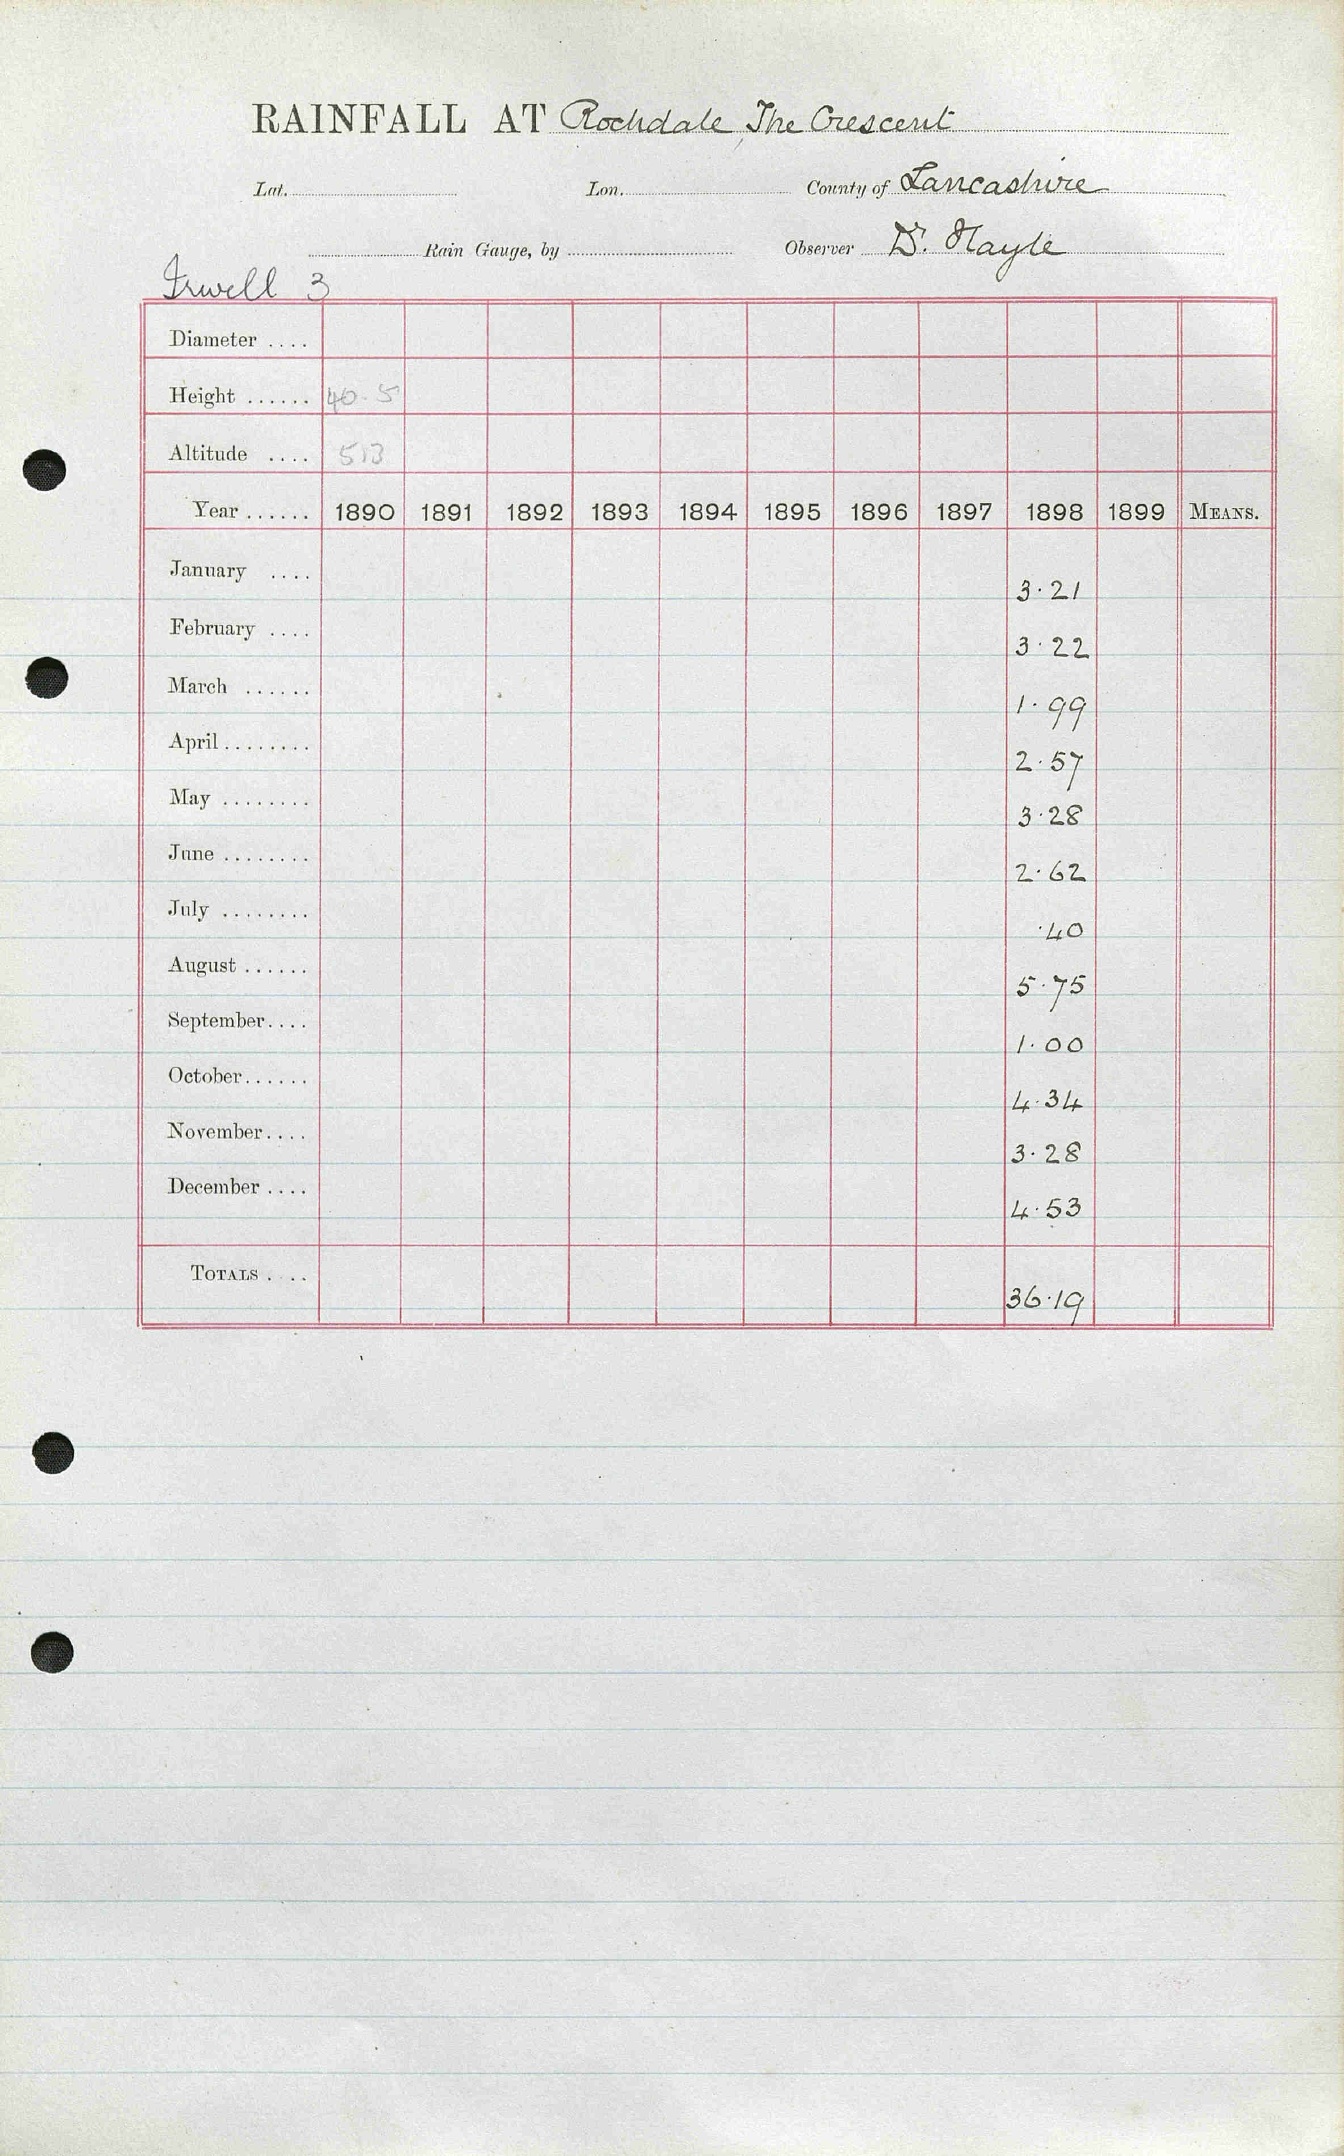 RAINFALL AT Rochdale, The Crescent
Lat. Lon. County of Lancashire
Rain Gauge, by Observer Dr. Hayle
Irwell 3
Diameter ....
Height ...... 40.5
Altitude .... 513
Year ...... 1890 1891 1892 1893 1894 1895 1896 1897 1898 1899 MEANS.
January .... 3.21
February .... 3.22
March ...... 1.99
April ........ 2.57
May ........ 3.28
June ........ 2.62
July ........ .40
August ...... 5.75
September.... 1.00
October...... 4.34
November.... 3.28
December .... 4.53
TOTALS .... 36.19